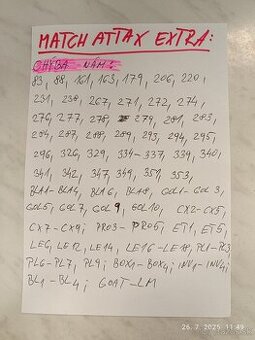 MATCH ATTAX EXTRA:
CHÝBA NÁM:
83, 88, 161, 163, 179, 206, 220,
231, 238, 267, 271, 272, 274,
276, 277, 278, 279, 281, 283,
284, 287, 288, 289, 293, 294, 295,
296, 326, 329, 334-337, 339, 340,
341, 342, 347, 349, 351, 353,
BLA1-BLA4, BLA6, BLA8, GOL1-GOL3,
GOL5, GOL7, GOL9, GOL10, CX2-CX5,
CX7-CX9; PRO3-PRO5; ET1, ET5;
LE6, LE12, LE14, LE16-LE18, PL1-PL3
PL6-PL7, PL9; BOX1-BOX4; INV1-INV4;
BL1-BL4; GOAT-LM
26. 7. 2025 11:49